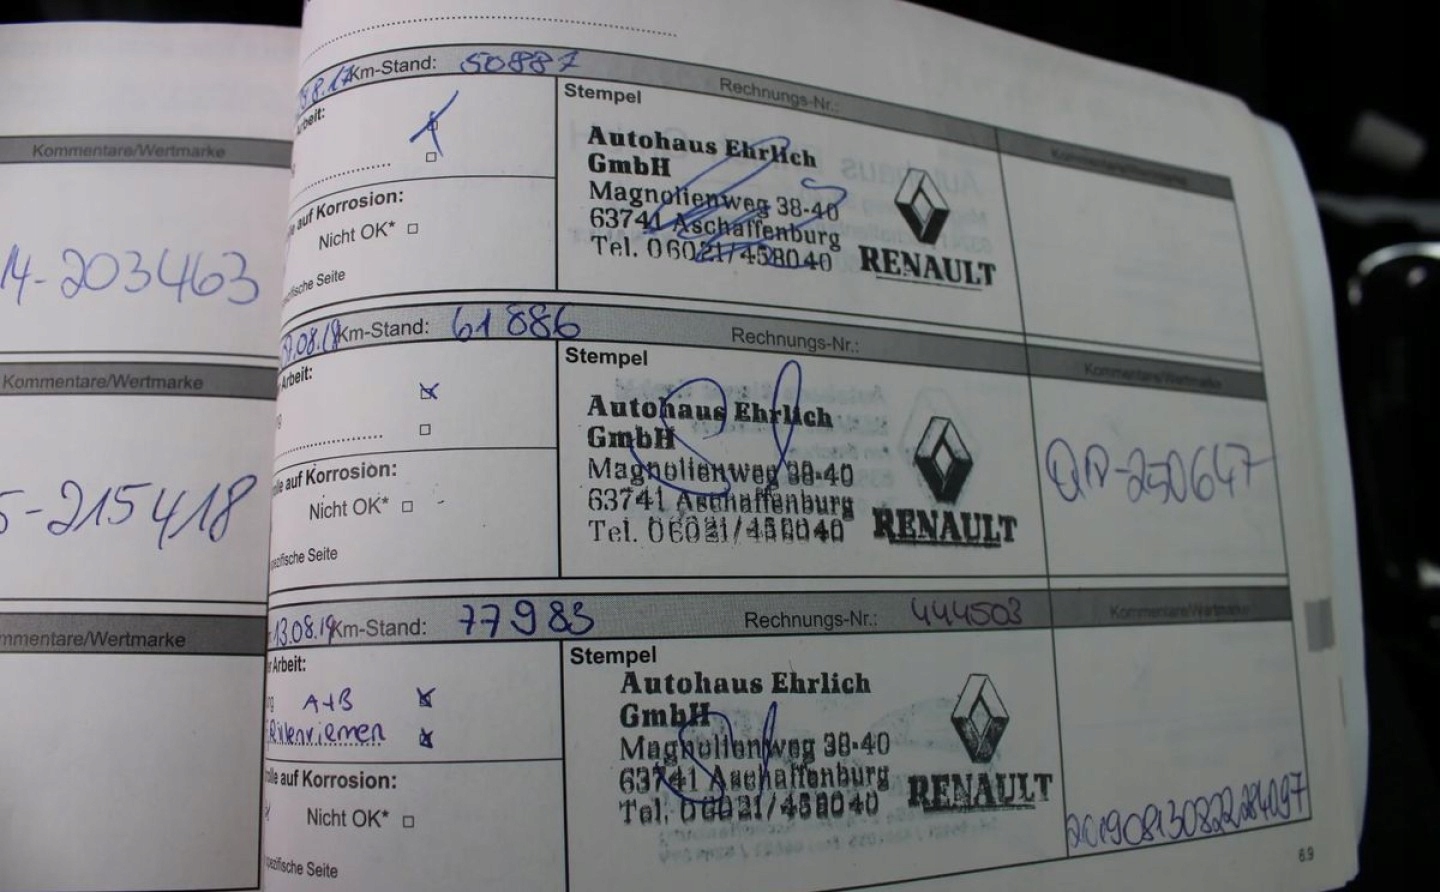 Kommentare/Wertmarke
14-203463
Kommentare/Wertmarke
5-215418
mmentare/Wertmarke
8.17 Km-Stand: 50887 Rechnungs-Nr.:
rbeit:
Stempel
Autohaus Ehrlich
GmbH
Magnolienweg 38-40
63741 Aschaffenburg
Tel. 06021/458040
RENAULT
Kommentare/Wertmarke
e auf Korrosion:
Nicht OK*
zifische Seite
.08.18 Km-Stand: 61886 Rechnungs-Nr.:
Arbeit:
Stempel
Autohaus Ehrlich
GmbH
Magnolienweg 38-40
63741 Aschaffenburg
Tel. 06021/458040
RENAULT
Kommentare/Wertmarke
-250647
lle auf Korrosion:
Nicht OK*
ezifische Seite
13.08.19 Km-Stand: 77983 Rechnungs-Nr.: 444503
r Arbeit:
ng A+B
Rillenriemen
Stempel
Autohaus Ehrlich
GmbH
Magnolienweg 38-40
63741 Aschaffenburg
Tel. 06021/458040
RENAULT
Kommentare/Wertmarke
olle auf Korrosion:
Nicht OK*
pezifische Seite
6.9